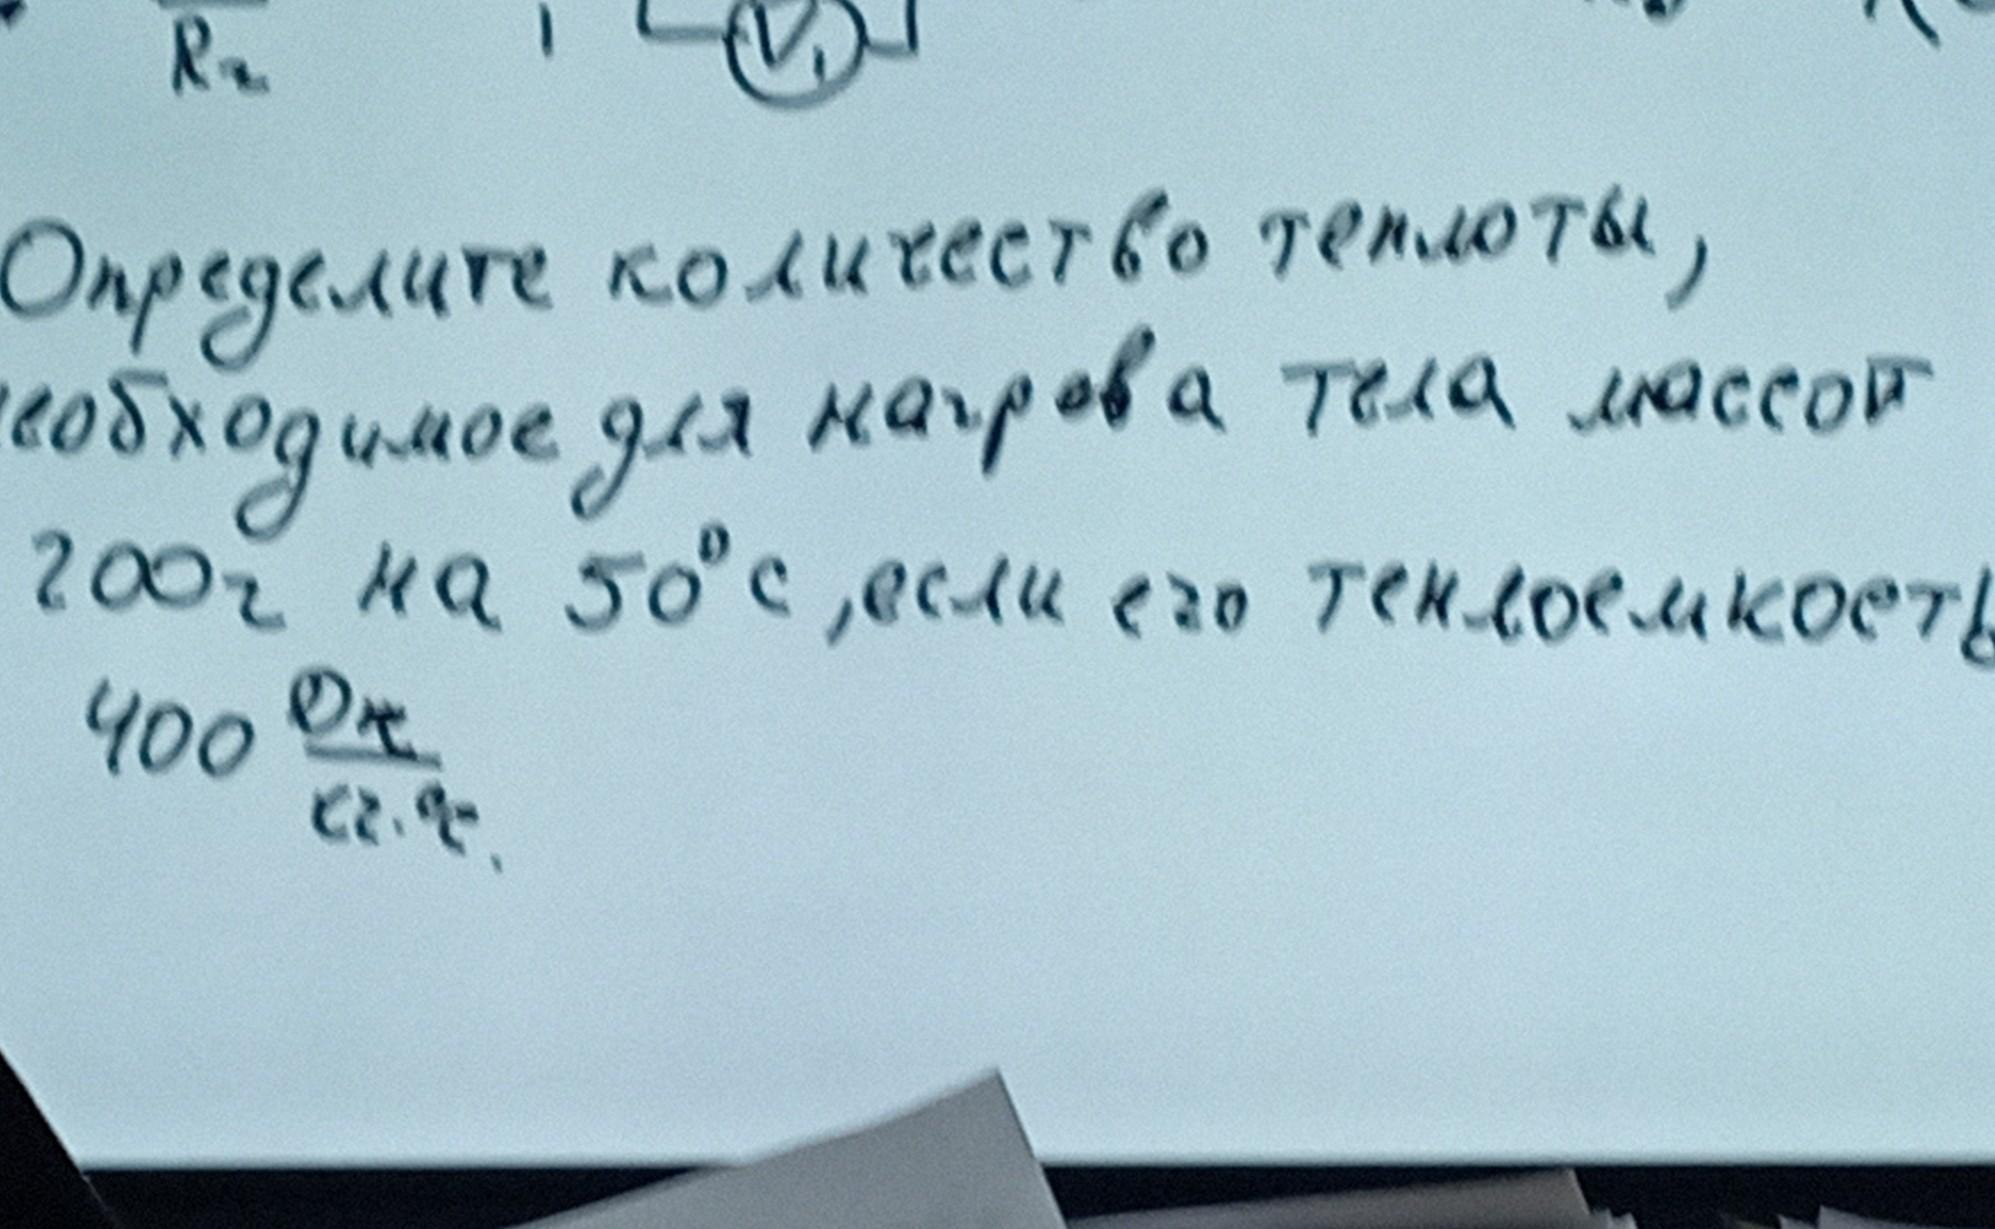 R₂ 1 V₁
Определите количество теплоты,
необходимое для нагрова тела массой
200г на 50°с, если его теплоемкость
400 Дж/кг.°с.